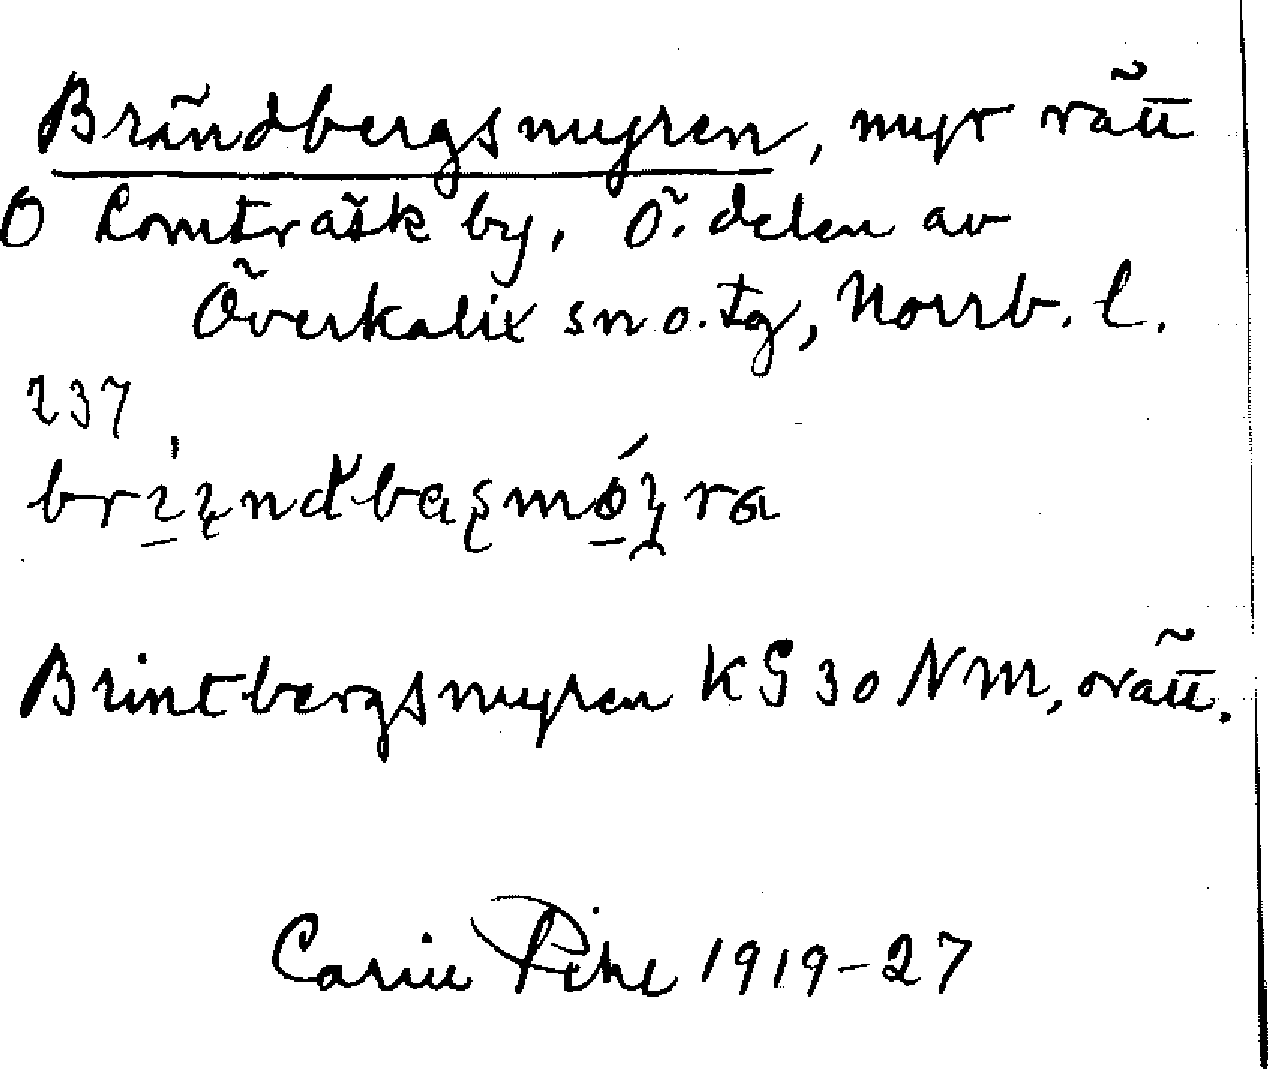 Brändbergsmyren, myr rätt
O Lomträsk by, Ö. delen av
Överkalix sn o. tg, Norrb. l.
237
Brintbergsmyren KG 30 NM, orätt.
Carin Pihl 1919-27